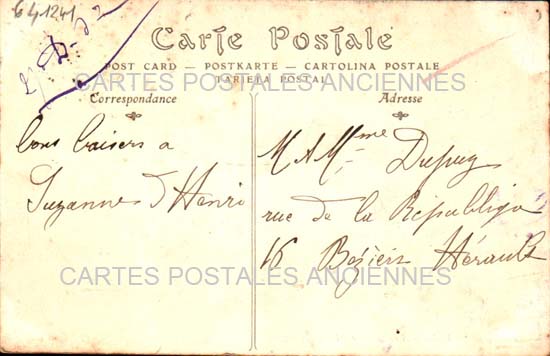 641241
Carte Postale
POST CARD — POSTKARTE — CARTOLINA POSTALE
TARJETA POSTAL
CARTES POSTALES ANCIENNES
Correspondance
bons baisers a
Suzanne d Henri
Adresse
M & Mme Dupuy
rue de la Républiqe
16 Béziers Hérault
CARTES POSTALES ANCIENNES